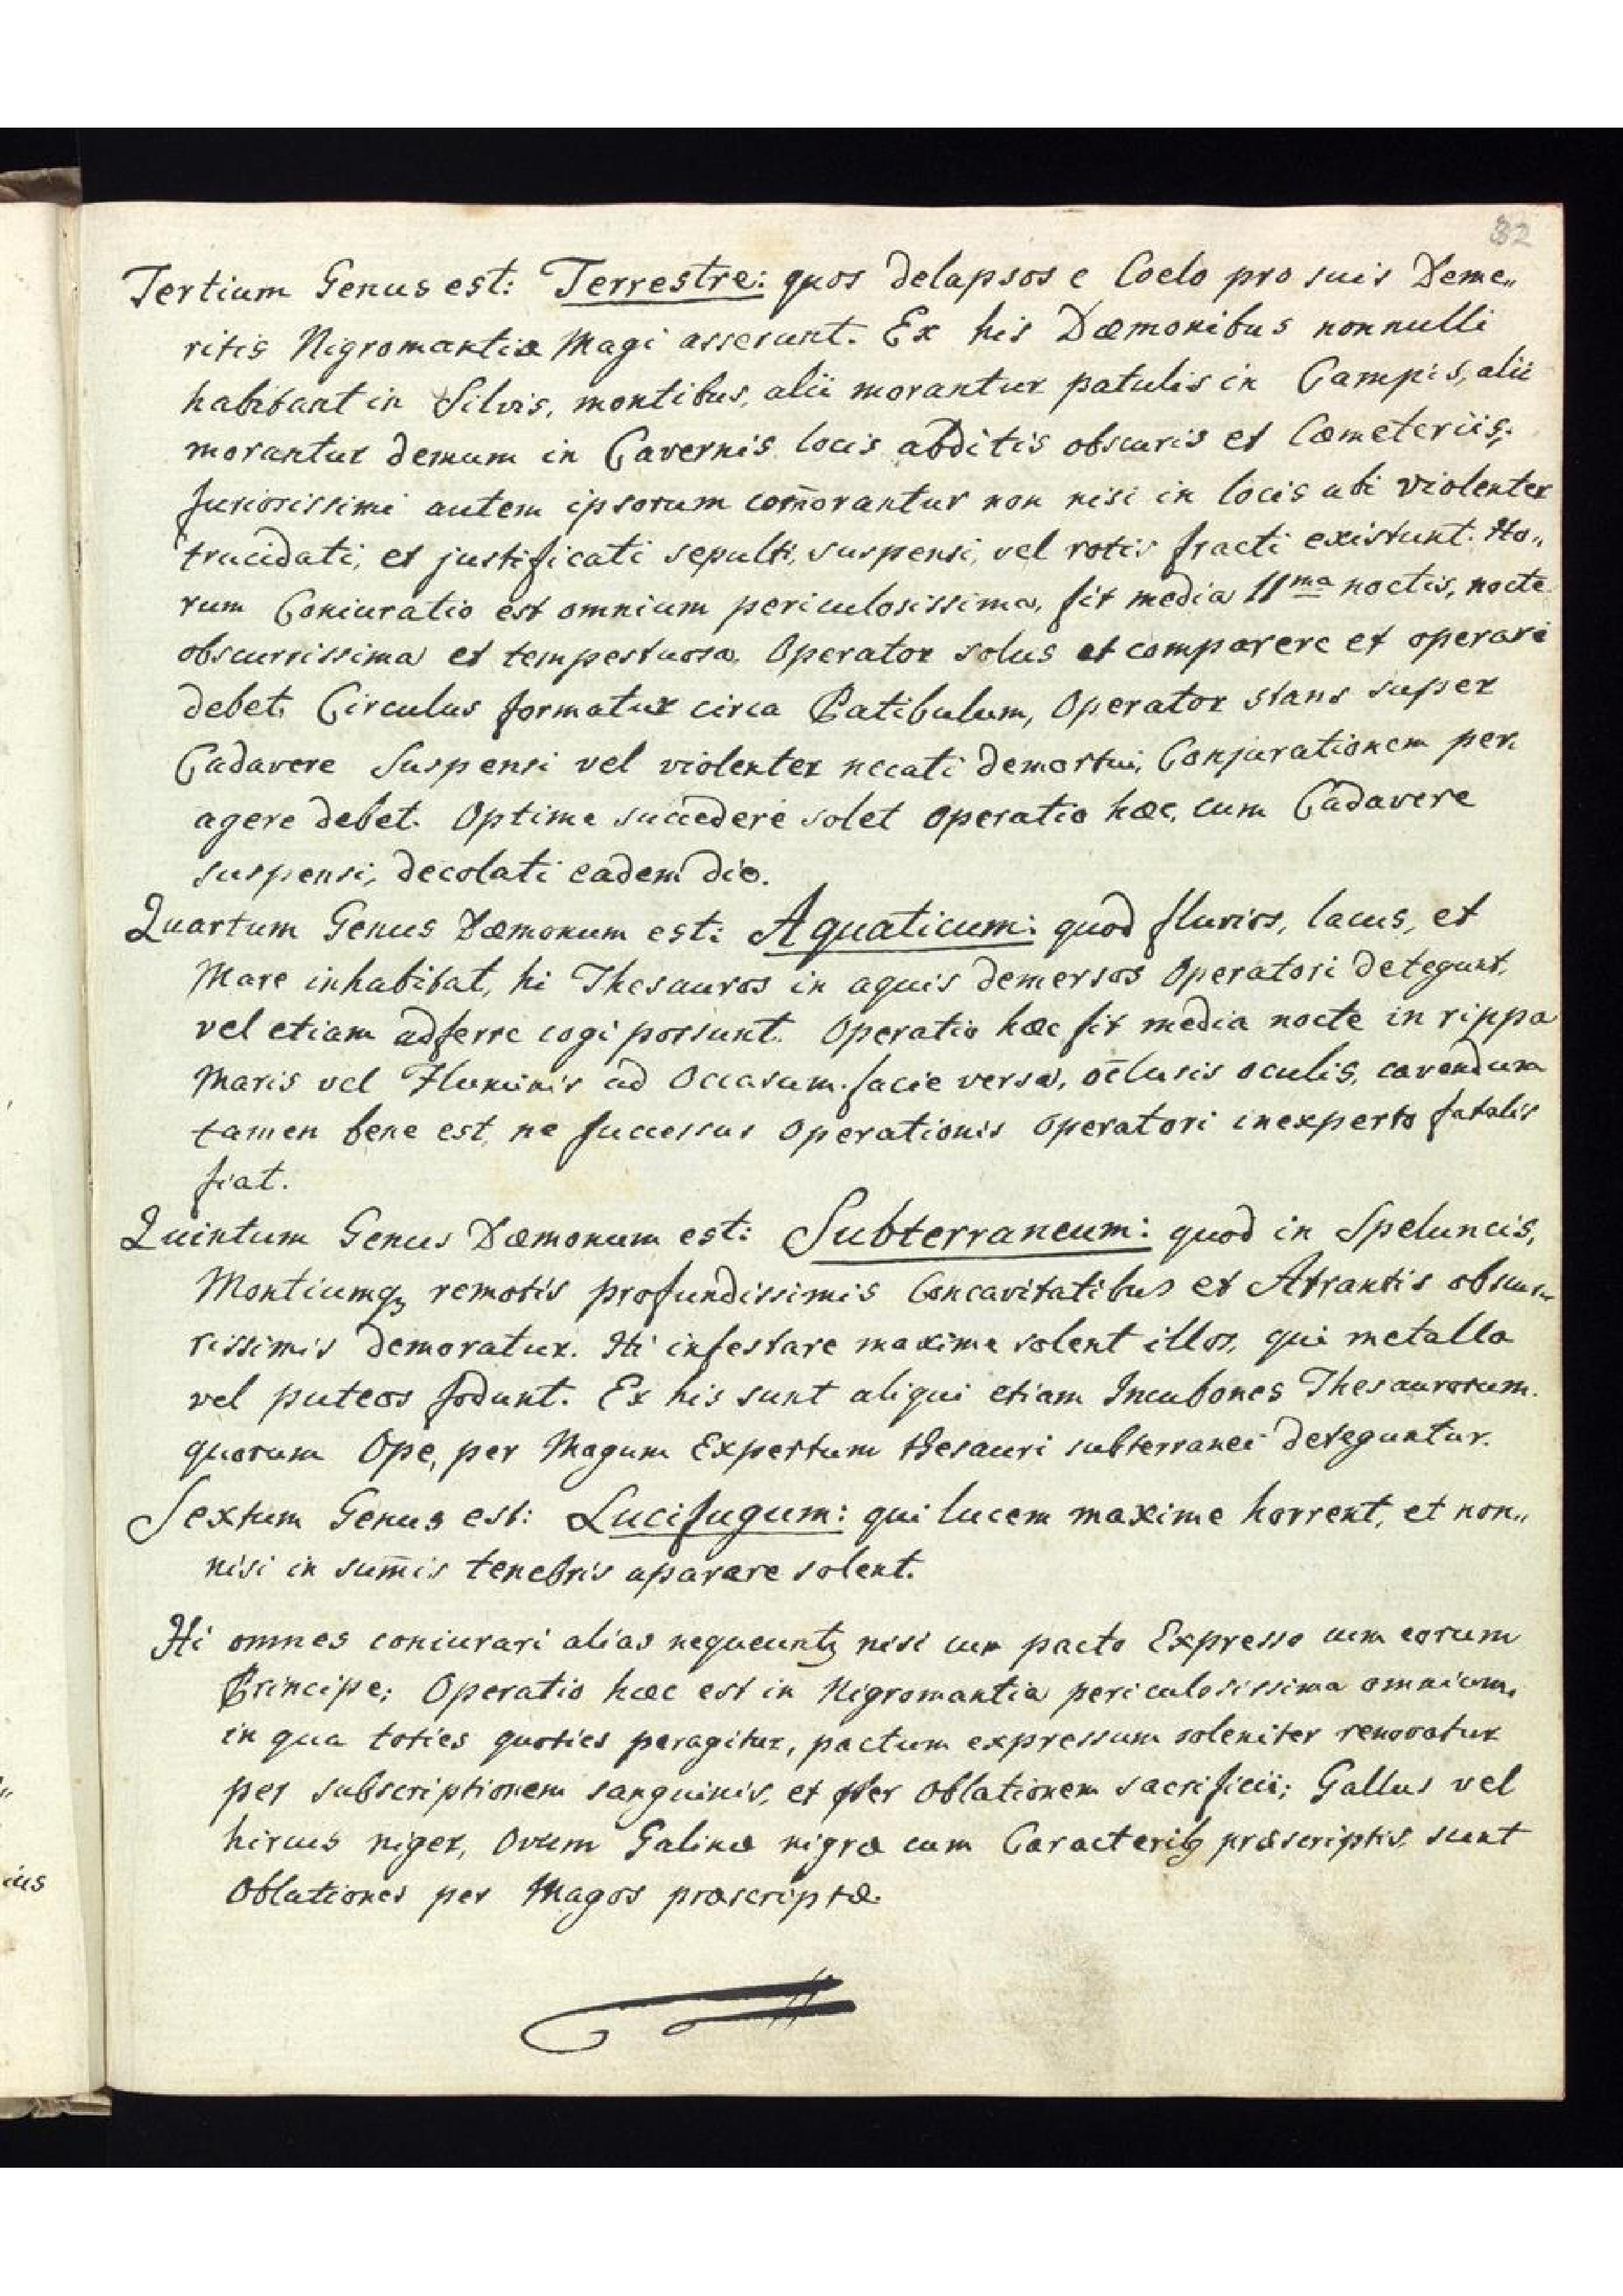 32
Tertium Genus est: Terrestre: quos delapsos e Coelo pro suis Deme„
ritis Nigromantiæ Magi asserunt. Ex his Dæmonibus nonnulli
habitant in Silvis, montibus, alii morantur patulis in Campis, alii
morantur demum in Cavernis locis abditis obscuris et Cœmeteriis;
furiosissimi autem ipsorum com̄orantur non nisi in locis ubi violenter
trucidati, et justificati sepulti, suspensi, vel rotis fracti existunt. Ho„
rum Coniuratio est omnium periculosissima, fit media 11ma noctis, nocte
obscurrissima et tempestuosa. Operator solus et comparere et operari
debet. Circulus formatur circa Patibulum, Operator stans super
Cadavere Suspensi vel violenter necati demortui, Conjurationem per
agere debet. Optime succedere solet operatio hæc, cum Cadavere
suspensi, decolati eadem die.
Quartum Genus Dæmonum est: Aquaticum: quod fluvios, lacus, et
Mare inhabitat, hi Thesauros in aquis demersos Operatori detegunt,
vel etiam adferre cogi possunt. Operatio hæc fit media nocte in rippa
Maris vel Fluminis ad Occasum facie versa, oc̄lusis oculis, cavendum
tamen bene est, ne successus operationis operatori inexperto fatalis
fiat.
Quintum Genus Dæmonum est: Subterraneum: quod in Speluncis,
Montiumq₃ remotis profundissimis Concavitatibus et Atrantis obscu„
rissimis demoratur. Hi infestare maxime solent illos, qui metalla
vel puteos fodunt. Ex his sunt aliqui etiam Incubones Thesaurorum.
quorum Ope, per Magum Expertum thesauri subterranei deteguntur.
Sextum Genus est: Lucifugum: qui lucem maxime horrent, et non„
nisi in sum̄is tenebris aparare solent.
Hi omnes coniurari alias nequeunt, nisi cum pacto Expresso cum eorum
Principe; Operatio hæc est in Nigromantia periculosissima omnium,
in qua toties quoties peragitur, pactum expressum soleniter renovatur
per subscriptionem sanguinis, et per oblationem sacrificii; Gallus vel
hircus niger, Ovum Galinæ nigræ cum Caracterib₃ præscriptis, sunt
Oblationes per Magos præscriptæ.